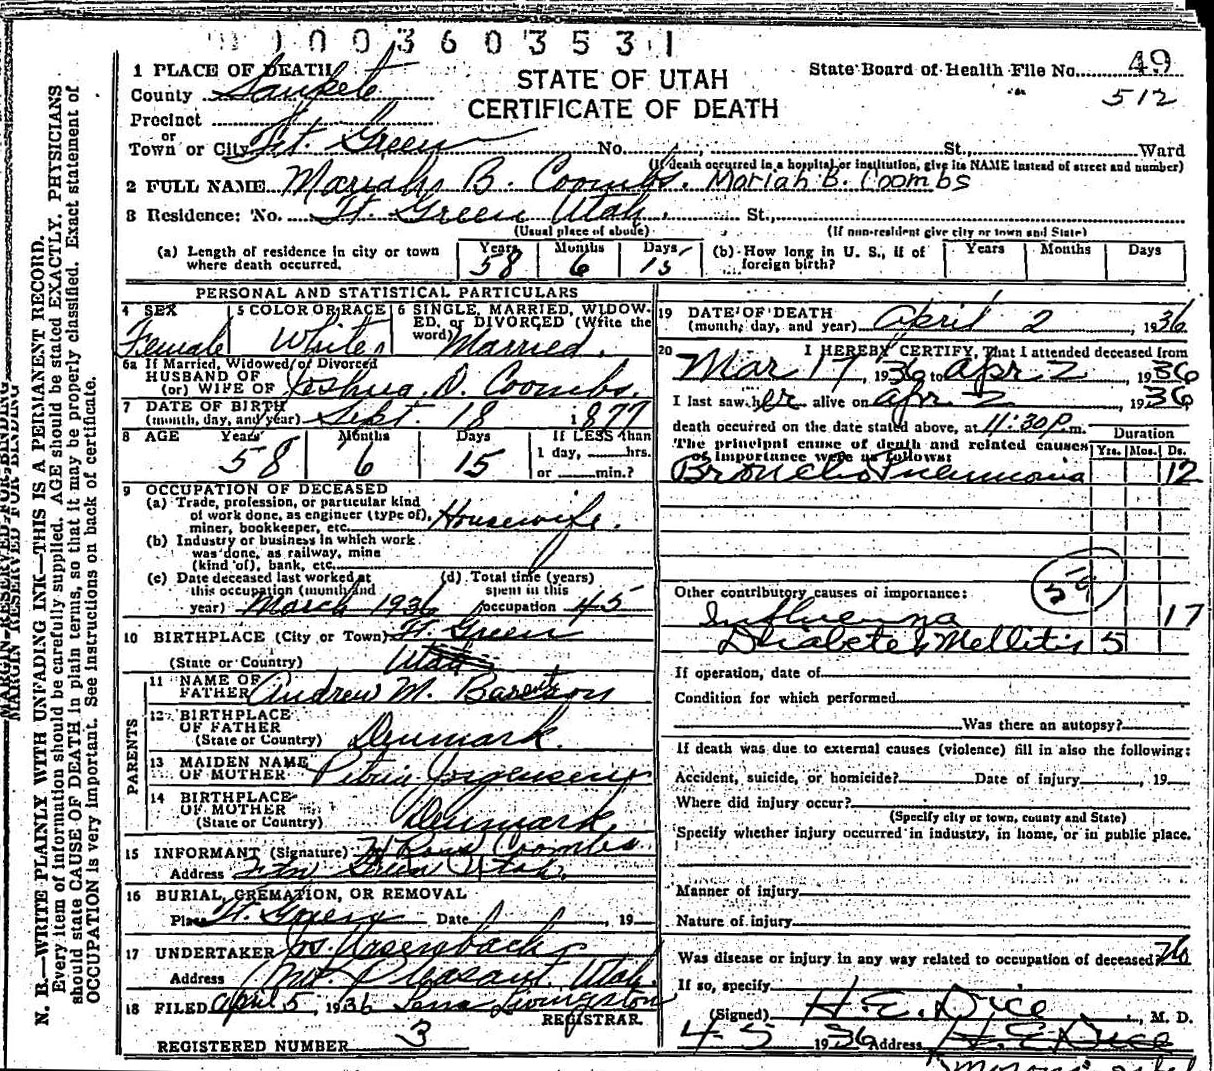 1003603531
1 PLACE OF DEATH
County Sanpete
STATE OF UTAH
CERTIFICATE OF DEATH
State Board of Health File No. 49
512
Precinct
or
Town or City Ft. Green No. St., Ward
(If death occurred in a hospital or institution, give its NAME instead of street and number)
2 FULL NAME Mariah B. Coombs. Moriah B. Coombs
3 Residence: No. Ft. Green Utah. St.,
(Usual place of abode) (If non-resident give city or town and State)
(a) Length of residence in city or town where death occurred. Years 58 Months 6 Days 15 (b) How long in U. S., if of foreign birth? Years Months Days
PERSONAL AND STATISTICAL PARTICULARS
4 SEX Female
5 COLOR OR RACE White
6 SINGLE, MARRIED, WIDOWED, or DIVORCED (Write the word) Married.
6a If Married, Widowed, or Divorced
HUSBAND OF
(or) WIFE OF Joshua D. Coombs.
7 DATE OF BIRTH
(month, day, and year) Sept. 18 1877
8 AGE Years 58 Months 6 Days 15 If LESS than
1 day, hrs.
or min.?
9 OCCUPATION OF DECEASED
(a) Trade, profession, or particular kind
of work done, as engineer (type of),
miner, bookkeeper, etc. Housewife.
(b) Industry or business in which work
was done, as railway, mine
(kind of), bank, etc.
(c) Date deceased last worked at
this occupation (month and
year) March 1936
(d) Total time (years)
spent in this
occupation 45
10 BIRTHPLACE (City or Town) Ft. Green
(State or Country) Utah
PARENTS
11 NAME OF
FATHER Andrew M. Barentson
12 BIRTHPLACE
OF FATHER
(State or Country) Denmark.
13 MAIDEN NAME
OF MOTHER Jorgensen
14 BIRTHPLACE
OF MOTHER
(State or Country) Denmark
15 INFORMANT (Signature) Coombs
Address Green Utah.
16 BURIAL, CREMATION, OR REMOVAL
Place Ft. Green Date , 19
17 UNDERTAKER
Address Mt. Pleasant, Utah.
18 FILED April 5, 1936 Livingston
REGISTRAR.
REGISTERED NUMBER 3
19 DATE OF DEATH
(month, day, and year) April 2, 1936
20 I HEREBY CERTIFY, That I attended deceased from
Mar 17, 1936 to Apr 2, 1936
I last saw her alive on Apr 2, 1936
death occurred on the date stated above, at 11:30 P.m.
The principal cause of death and related causes
of importance were as follows: Duration
Yrs. Mos. Ds.
Broncho Pneumonia 12
Other contributory causes of importance:
Influenza 17
Dhiabetes Mellitis 5
If operation, date of
Condition for which performed
Was there an autopsy?
If death was due to external causes (violence) fill in also the following:
Accident, suicide, or homicide? Date of injury , 19
Where did injury occur?
(Specify city or town, county and State)
Specify whether injury occurred in industry, in home, or in public place.
Manner of injury
Nature of injury
Was disease or injury in any way related to occupation of deceased? No
If so, specify
(Signed) H. E. Dice, M. D.
4-5 1936 Address H. E. Dice
MARGIN RESERVED FOR BINDING
MARGIN RESERVED FOR BINDING
N. B.—WRITE PLAINLY WITH UNFADING INK—THIS IS A PERMANENT RECORD.
Every item of information should be carefully supplied. AGE should be stated EXACTLY. PHYSICIANS
should state CAUSE OF DEATH in plain terms, so that it may be properly classified. Exact statement of
OCCUPATION is very important. See instructions on back of certificate.